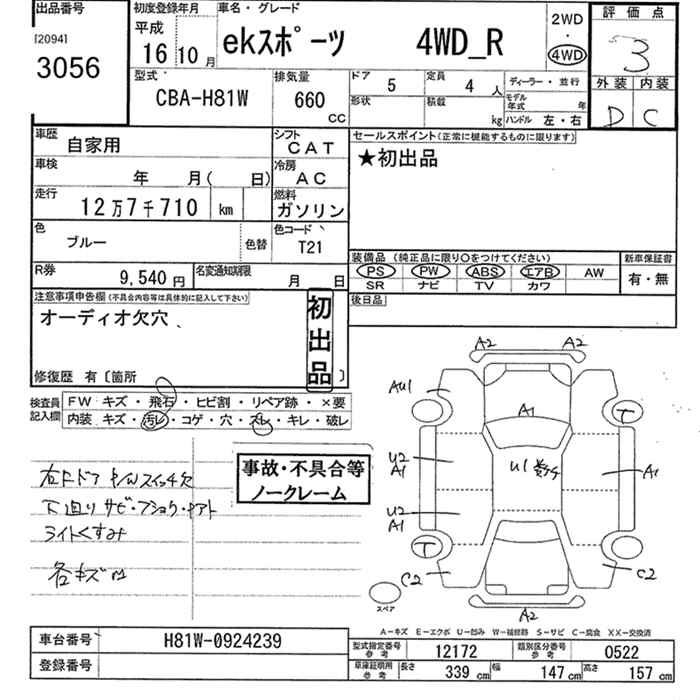 出品番号
[2094]
3056
初度登録年月
平成
16 10月
車名・グレード
ekスポーツ 4WD_R
2WD
・
4WD
評価点
3
外装 内装
D C
型式
CBA-H81W
排気量
660
CC
ドア 5
定員 4 人
形状
積載 kg
ディーラー・並行
モデル年式 年
ハンドル 左・右
車歴 自家用
シフト CAT
セールスポイント(正常に機能するものに限ります)
★初出品
車検 年 月( 日)
冷房 AC
走行 12万7千710 km
燃料 ガソリン
色 ブルー 色替
色コード T21
装備品 (純正品に限り〇をつけてください)
新車保証書
PS PW ABS エアB AW
SR ナビ TV カワ
有・無
R券 9,540 円
名変通知期限 月 日
後日品
注意事項申告欄(不具合内容等は具体的に記入して下さい)
オーディオ欠穴
初出品
修復歴 有〔箇所 〕
検査員記入欄
FW キズ・飛石・ヒビ割・リペア跡・×要
内装 キズ・汚レ・コゲ・穴・スレ・キレ・破レ
右Fドア P/Wスイッチ欠
下廻りサビ・
ライトくすみ
各キズ
事故・不具合等
ノークレーム
A2 A2
AU1
A1
T
U2
A1
U1
A1
U2
A1
T
C2
C2
A2
スペア
A－キズ E－エクボ U－凹み W－補修跡 S－サビ C－腐食 XX－交換済
車台番号 H81W-0924239
登録番号
型式指定番号 参考 12172
類別区分番号 参考 0522
車庫証明用 参考 長さ 339 cm 幅 147 cm 高さ 157 cm